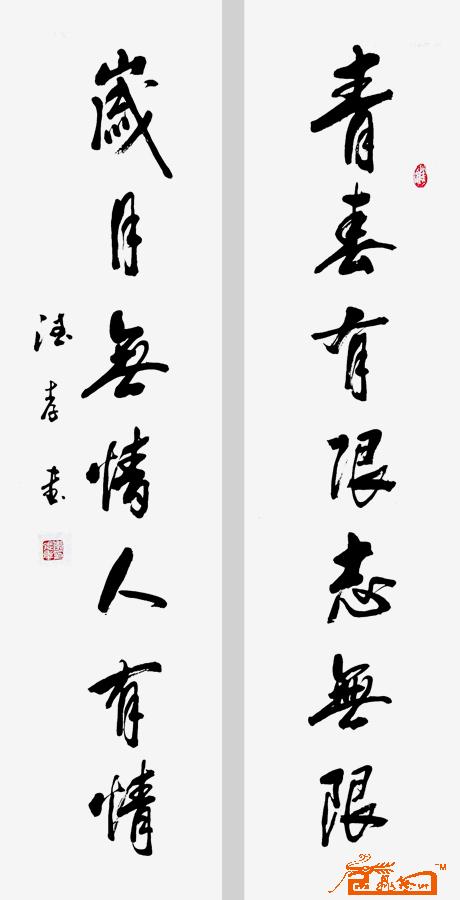 青春有限志無限
歲月無情人有情